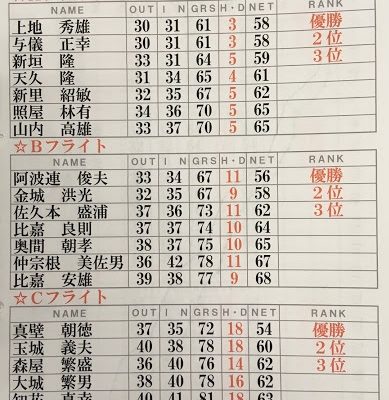 NAME OUT I N GRS H・D NET RANK
上地 秀雄 30 31 61 3 58 優勝
与儀 正幸 30 31 61 3 58 2位
新垣 隆 33 31 64 5 59 3位
天久 隆 31 34 65 4 61
新里 紹敏 32 35 67 5 62
照屋 林有 34 36 70 5 65
山内 高雄 33 37 70 5 65
☆Bフライト
NAME OUT I N GRS H・D NET RANK
阿波連 俊夫 33 34 67 11 56 優勝
金城 洪光 32 35 67 9 58 2位
佐久本 盛浦 37 36 73 11 62 3位
比嘉 良則 37 37 74 10 64
奥間 朝孝 38 37 75 10 65
仲宗根 美佐男 36 42 78 11 67
比嘉 安雄 39 38 77 9 68
☆Cフライト
NAME OUT I N GRS H・D NET RANK
真壁 朝徳 37 35 72 18 54 優勝
玉城 義夫 40 38 78 18 60 2位
森屋 繁盛 36 40 76 14 62 3位
大城 繁男 38 40 78 16 62
知花 真幸 40 41 81 18 63